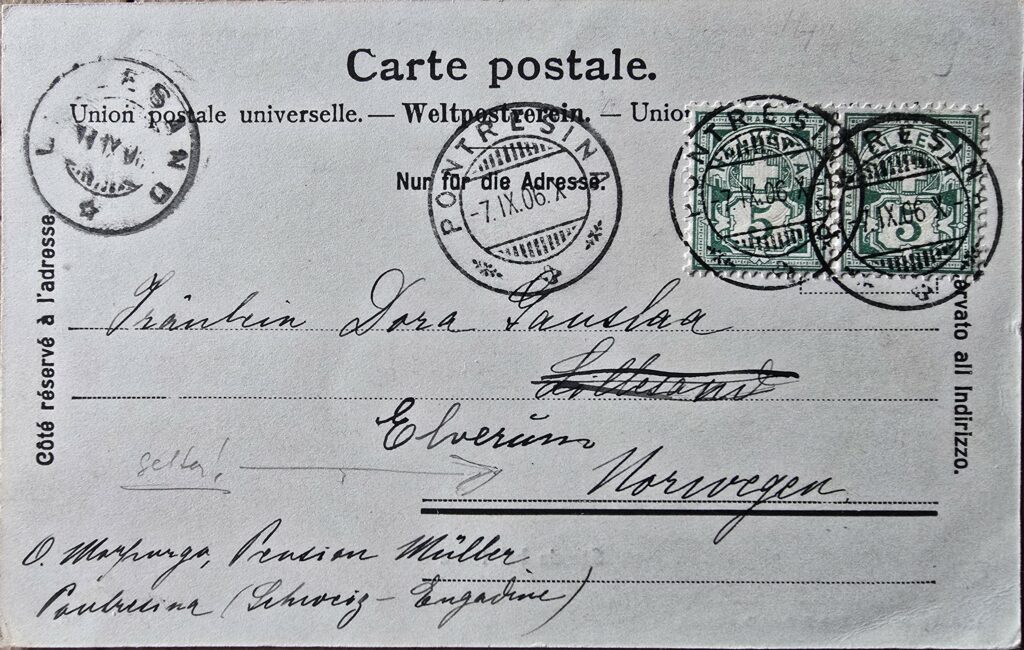 Carte postale.
Union postale universelle. — Weltpostverein. — Unio
Nur für die Adresse.
Côté réservé à l'adresse.
arvato all indirizzo.
PONTRESINA
-7.IX.06.X-
PONTRESINA
-7.IX.06.X
5
PONTRESINA
-7.IX.06.X-
5
L ESAND
Fräulein Dora Gauslaa
Lillesand
Elverum
Norwegen.
O. Morpurgo, Pension Müller.
Pontresina (Schweiz - Engadine)